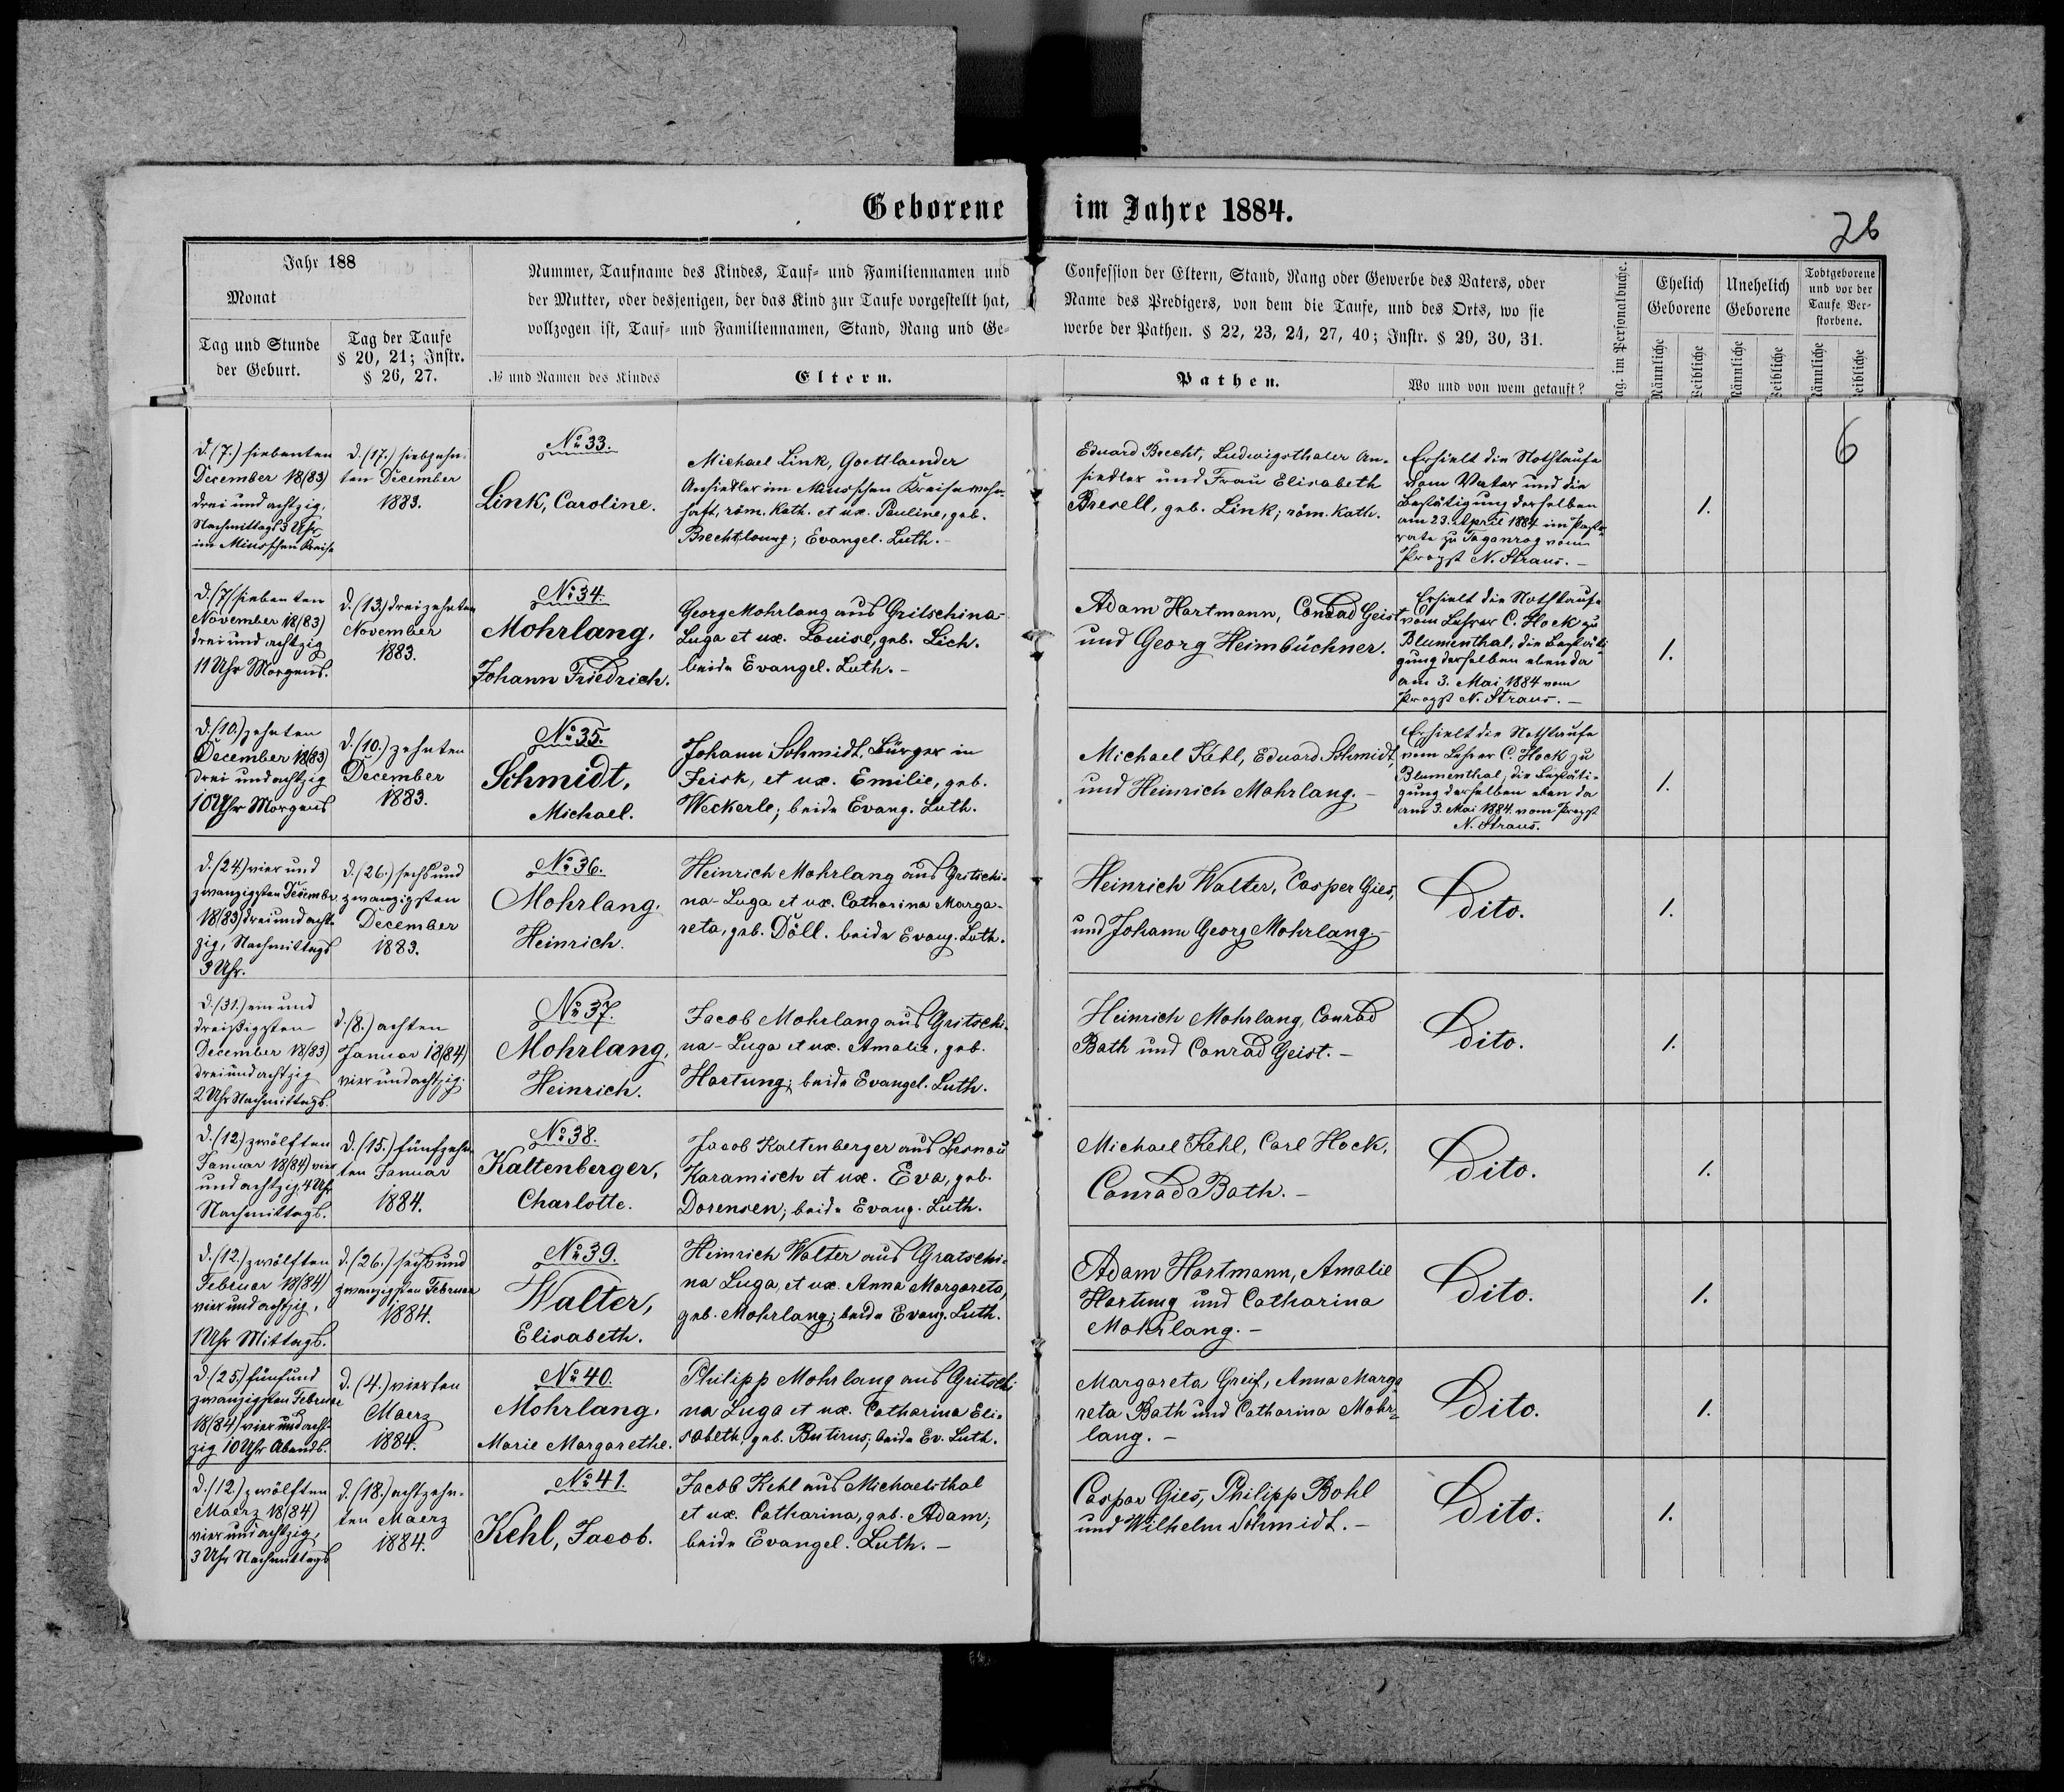 Geborene im Jahre 1884.
26
Jahr 188
Monat
Tag und Stunde
der Geburt.
Tag der Taufe
§ 20, 21; Instr.
§ 26, 27.
Nummer, Taufname des Kindes, Tauf- und Familiennamen und
der Mutter, oder desjenigen, der das Kind zur Taufe vorgestellt hat,
vollzogen ist, Tauf- und Familiennamen, Stand, Rang und Ge-
№ und Namen des Kindes
Eltern.
Confession der Eltern, Stand, Rang oder Gewerbe des Vaters, oder
Name des Predigers, von dem die Taufe, und des Orts, wo sie
werbe der Pathen. § 22, 23, 24, 27, 40; Instr. § 29, 30, 31.
Pathen.
Wo und von wem getauft?
ag. im Personalbuche.
Ehelich
Geborene
Unehelich
Geborene
Todtgeborene
und vor der
Taufe Ver-
storbene.
Männliche
Weibliche
Männliche
Weibliche
Männliche
Weibliche
6
d. (7.) siebenten
December 18(83)
drei und achtzig,
Nachmittags 3 Uhr
im Miusschen Kreise
d. (17.) siebzehn-
ten December
1883.
№ 33.
Link, Caroline.
Michael Link, Goettlaender
Ansiedler im Miusschen Kreise wohn-
haft, röm. Kath. et ux. Pauline, geb.
Brechtloung; Evangel. Luth.-
Eduard Brecht, Ludwigsthaler An-
siedler und Frau Elisabeth
Bresell, geb. Link; röm. Kath.
Erhielt die Nothtaufe
vom Vater und die
Bestätigung derselben
am 23. April 1884 im Pasto-
rate zu Taganrog vom
Propst N. Straus.-
1.
d. (7) siebenten
November 18(83)
drei und achtzig
11 Uhr Morgens.
d. (13.) dreizehnten
November
1883.
№ 34.
Mohrlang,
Johann Friedrich.
Georg Mohrlang aus Gritschina-
Luga et ux. Louise, geb. Lich.
beide Evangel. Luth.-
Adam Hartmann, Conrad Geist
und Georg Heimbüchner.
Erhielt die Nothtaufe
vom Lehrer C. Hock zu
Blumenthal, die Bestäti-
gung derselben eben da
am 3. Mai 1884 vom
Propst N. Straus.-
1.
d. (10.) zehnten
December 18(83)
drei und achtzig
10 Uhr Morgens
d. (10.) zehnten
December
1883.
№ 35.
Schmidt,
Michael.
Johann Schmidt, Bürger in
Jeisk, et ux. Emilie, geb.
Weckerle; beide Evang. Luth.
Michael Kehl, Eduard Schmidt,
und Heinrich Mohrlang.-
Erhielt die Nothtaufe
vom Lehrer C. Hock zu
Blumenthal, die Bestäti-
gung derselben eben da
am 3. Mai 1884 vom Propst
N. Straus.
1.
d. (24) vier und
zwanzigsten Decembr.
18(83) drei und acht-
zig, Nachmittags
3 Uhr.
d. (26.) sechs und
zwanzigsten
December
1883.
№ 36.
Mohrlang,
Heinrich.
Heinrich Mohrlang aus Gritschi-
na-Luga et ux. Catharina Marga-
reta, geb. Döll. beide Evang. Luth.
Heinrich Walter, Casper Gies,
und Johann Georg Mohrlang.-
Dito.
1.
d. (31.) ein und
dreißigsten
December 18(83)
drei und achtzig
2 Uhr Nachmittags.
d. (8.) achten
Januar 18(84)
vier und achtzig.
№ 37.
Mohrlang,
Heinrich.
Jacob Mohrlang aus Gritschi-
na-Luga et ux. Amalie, geb.
Hartung; beide Evangel. Luth.
Heinrich Mohrlang, Conrad
Bath und Conrad Geist.-
Dito.
1.
d. (12) zwölften
Januar 18(84) vier
und achtzig, 4 Uhr
Nachmittags.
d. (15.) fünfzehn-
ten Januar
1884.
№ 38.
Kaltenberger,
Charlotte.
Jacob Kaltenberger aus Lesnoü
Karamisch et ux. Eva, geb.
Dorensen; beide Evang. Luth.
Michael Kehl, Carl Hock,
Conrad Bath.-
Dito.
1.
d. (12.) zwölften
Februar 18(84)
vier und achtzig,
1 Uhr Mittags.
d. (26.) sechs und
zwanzigsten Februar
1884.
№ 39.
Walter,
Elisabeth.
Heinrich Walter aus Gratschi-
na Luga, et ux. Anna Margareta,
geb. Mohrlang; beide Evang. Luth.
Adam Hartmann, Amalie
Hartung und Catharina
Mohrlang.-
Dito.
1.
d. (25) fünf und
zwanzigsten Februar
18(84) vier und acht-
zig 10 Uhr Abends.
d. (4.) vierten
Maerz
1884.
№ 40.
Mohrlang,
Marie Margarethe.
Philipp Mohrlang aus Gritschi
na Luga et ux. Catharina Eli-
sabeth, geb. Buterus; beide Ev. Luth.
Margareta Greif, Anna Marga-
reta Bath und Catharina Mohr-
lang.-
Dito.
1.
d. (12.) zwölften
Maerz 18(84)
vier und achtzig,
3 Uhr Nachmittags
d. (18.) achtzehn-
ten Maerz
1884.
№ 41.
Kehl, Jacob.
Jacob Kehl aus Michaelsthal
et ux. Catharina, geb. Adam;
beide Evangel. Luth.-
Caspar Gies, Philipp Bohl
und Wilhelm Schmidt.-
Dito.
1.